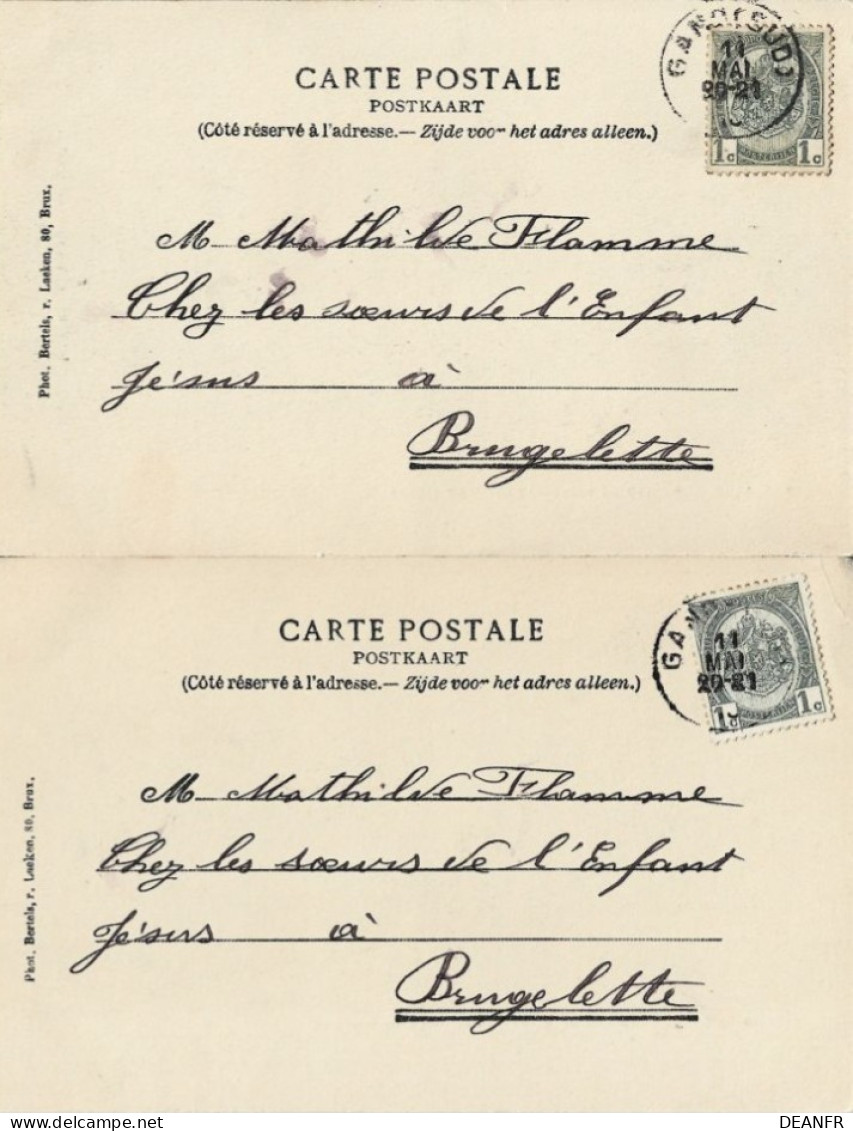 GAND (SUD)
11
MAI
20-21
1c 1c
CARTE POSTALE
POSTKAART
(Côté réservé à l'adresse.— Zijde voor het adres alleen.)
Phot. Bertels, r. Laeken, 80, Brux.
M Mathilde Flamme
Chez les sœurs de l'Enfant
Jésus à
Brugelette
GAND
11
MAI
20-21
1c 1c
CARTE POSTALE
POSTKAART
(Côté réservé à l'adresse.— Zijde voor het adres alleen.)
Phot. Bertels, r. Laeken, 80, Brux.
M Mathilde Flamme
Chez les sœurs de l'Enfant
Jésus à
Brugelette
DEANFR